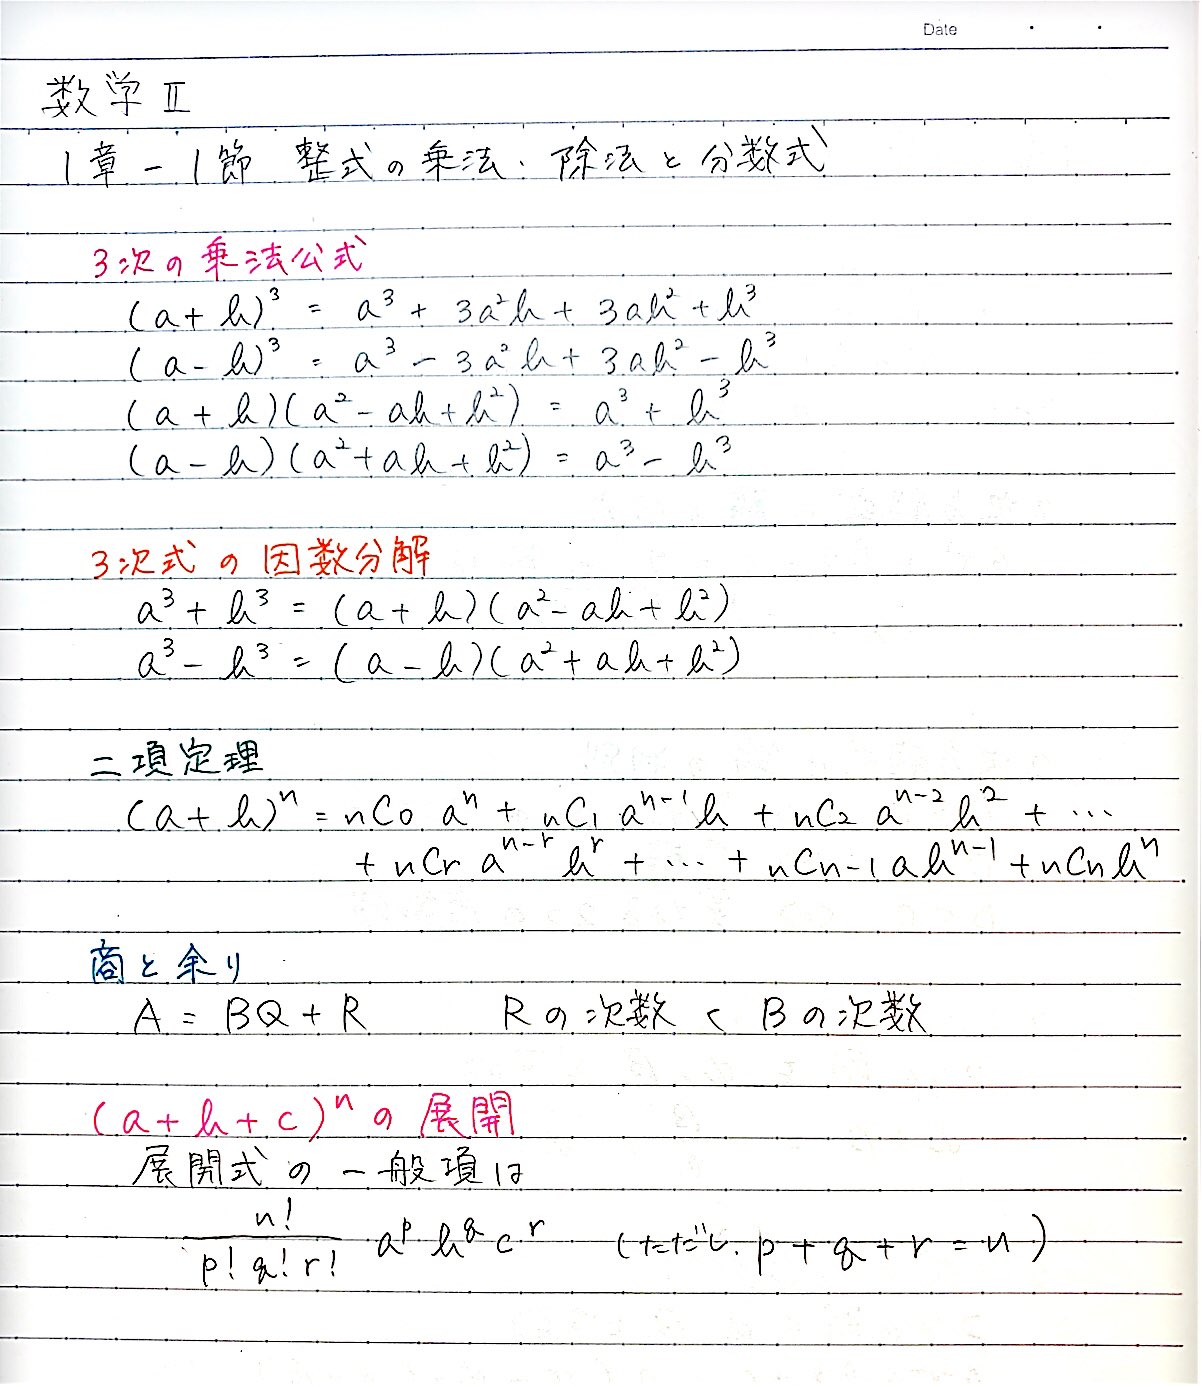 Date
数学Ⅱ
1章-1節 整式の乗法・除法と分数式
3次の乗法公式
(a+b)³ = a³ + 3a²b + 3ab² + b³
(a-b)³ = a³ - 3a²b + 3ab² - b³
(a+b)(a²-ab+b²) = a³ + b³
(a-b)(a²+ab+b²) = a³ - b³
3次式の因数分解
a³ + b³ = (a+b)(a²-ab+b²)
a³ - b³ = (a-b)(a²+ab+b²)
二項定理
(a+b)ⁿ = nC0 aⁿ + nC1 aⁿ⁻¹b + nC2 aⁿ⁻²b² + …
+ nCr aⁿ⁻ʳbʳ + … + nCn-1 abⁿ⁻¹ + nCn bⁿ
商と余り
A = BQ + R Rの次数 < Bの次数
(a+b+c)ⁿの展開
展開式の一般項は
n!/(p!q!r!) a^p b^q c^r (ただし、p+q+r=n)